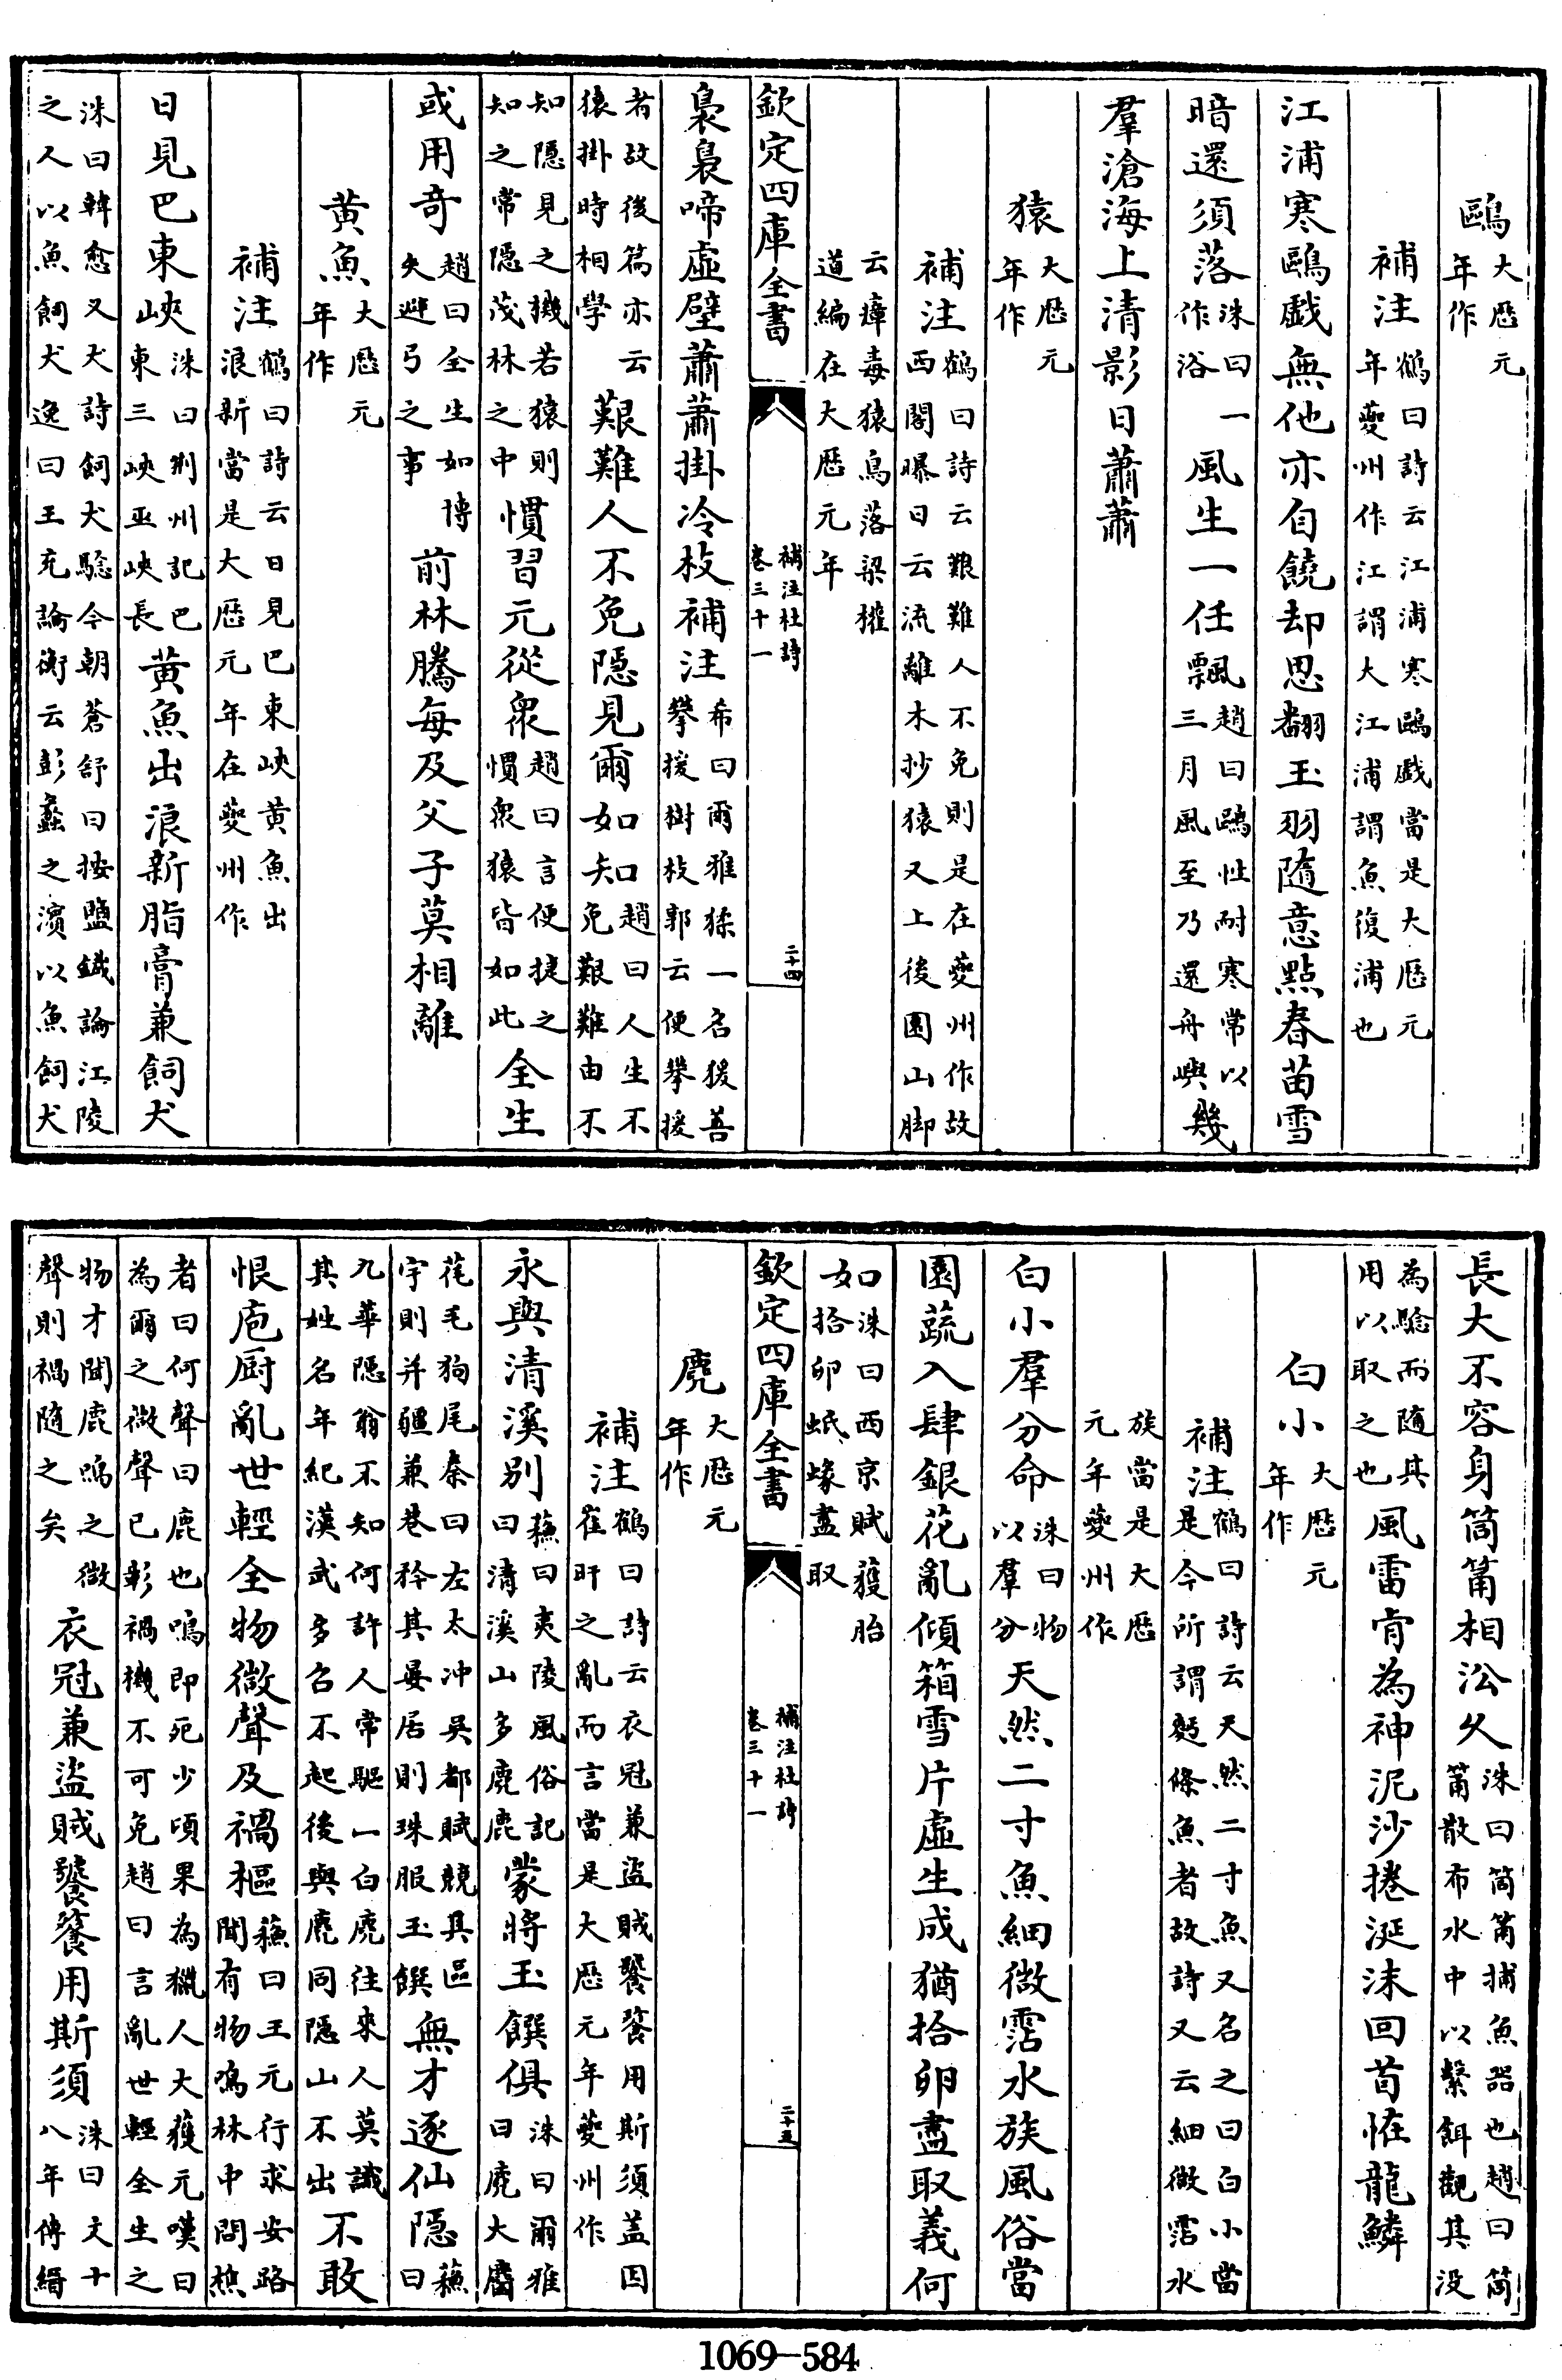 鷗大厯元年作
補注鶴曰詩云江浦寒鷗戯當是大厯元年夔州作江謂大江浦謂魚復浦也
江浦寒鷗戯無他亦自饒却思翻玉羽隨意點春苗雪
暗還須落洙曰一作浴風生一任飄趙曰鷗性耐寒常以三月風至乃還舟嶼幾
羣滄海上清影日蕭蕭
猿大厯元年作
補注鶴曰詩云艱難人不免則是在夔州作故西閣曝日云流離木抄猿又上後園山脚
云瘴毒猿鳥落梁權道編在大厯元年
欽定四庫全書 補注杜詩卷三十一 二十四
裊裊啼虛壁蕭蕭掛冷枝補注希曰爾雅猱一名猨善攀援樹枝郭云便攀援
者故後篇亦云猿掛時相學艱難人不免隠見爾如知趙曰人生不免艱難由不
知隠見之機若猿則知之常隠茂林之中慣習元從衆趙曰言便捷之慣衆猿皆如此全生
或用奇趙曰全生如博矢避弓之事前林騰每及父子莫相離
黄魚大厯元年作
補注鶴曰詩云日見巴東峽黄魚出浪新當是大厯元年在夔州作
日見巴東峽洙曰荆州記巴東三峽巫峽長黄魚出浪新脂膏兼飼犬
洙曰韓愈又犬詩飼犬驗今朝蒼舒曰按鹽鐡論江陵之人以魚飼犬逸曰王充論衡云彭蠡之濱以魚飼犬
長大不容身筒筩相沿久洙曰筒筩捕魚器也趙曰筒筩散布水中以繫餌觀其没
為驗而随其用以取之也風雷肯為神泥沙捲涎沫回首恠龍鱗
白小大厯元年作
補注鶴曰詩云天然二寸魚又名之曰白小當是今所謂麫條魚者故詩又云細微霑水
族當是大厯元年夔州作
白小羣分命洙曰物以羣分天然二寸魚細微霑水族風俗當
園蔬入肆銀花亂傾箱雪片虛生成猶拾卵盡取義何
如洙曰西京賦獲胎拾卵蚳蝝盡取
欽定四庫全書 補注杜詩卷三十一 二十五
麂大厯元年作
補注鶴曰詩云衣冠兼盜賊饕餮用斯須盖因崔旰之亂而言當是大厯元年夔州作
永與清溪别蘓曰夷陵風俗記曰清溪山多麂鹿蒙將玉饌俱洙曰爾雅曰麂大麕
旄毛狗尾秦曰左太冲吳都賦競其區宇則并疆兼巷矜其晏居則珠服玉饌無才逐仙隠蘓曰
九華隠翁不知何許人常驅一白麂往來人莫識其姓名年紀漢武多召不起後與麂同隠山不出不敢
恨庖厨亂世輕全物微聲及禍樞蘓曰王元行求安路聞有物鳴林中問樵
者曰何聲曰鹿也鳴即死少頃果為獵人大獲元嘆曰為爾之微聲已彰禍機不可免趙曰言亂世輕全生之
物才聞鹿鳴之微聲則禍隨之矣衣冠兼盜賊饕餮用斯須洙曰文十八年傳縉
1069-584